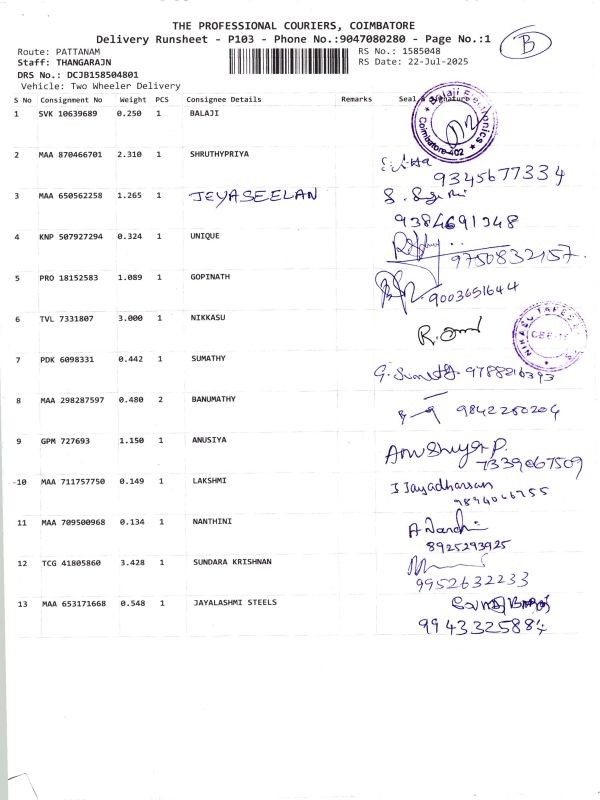 THE PROFESSIONAL COURIERS, COIMBATORE
Delivery Runsheet - P103 - Phone No.:9047080280 - Page No.:1
B
Route: PATTANAM
RS No.: 1585048
Staff: THANGARAJN
RS Date: 22-Jul-2025
DRS No.: DCJB158504801
Vehicle: Two Wheeler Delivery
S No Consignment No Weight PCS Consignee Details Remarks Seal & Signature
1 SVK 10639689 0.250 1 BALAJI
Balaji Electronics
Coimbatore-402
2 MAA 870466701 2.310 1 SHRUTHYPRIYA
9345677334
3 MAA 650562258 1.265 1 JEYASEELAN
9384691348
4 KNP 507927294 0.324 1 UNIQUE
9750832157.
5 PRO 18152583 1.089 1 GOPINATH
9003651644
6 TVL 7331807 3.000 1 NIKKASU
7 PDK 6098331 0.442 1 SUMATHY
9788216393
8 MAA 298287597 0.480 2 BANUMATHY
9842250204
9 GPM 727693 1.150 1 ANUSIYA
7339067509
-10 MAA 711757750 0.149 1 LAKSHMI
J Jayadharsan
11 MAA 709500968 0.134 1 NANTHINI
A Nandhi
8925293925
12 TCG 41805860 3.428 1 SUNDARA KRISHNAN
9952632233
13 MAA 653171668 0.548 1 JAYALASHMI STEELS